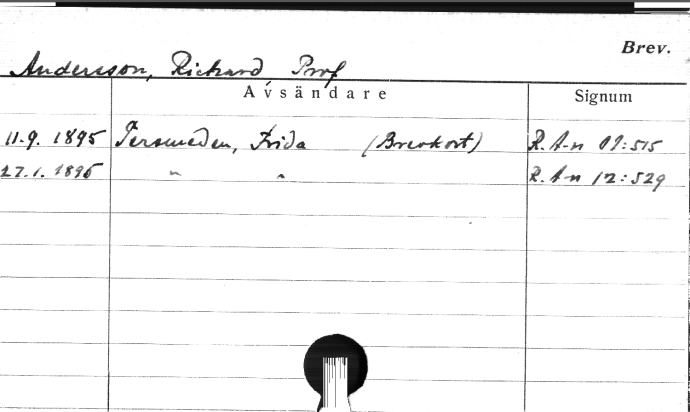 Brev.
Andersson, Richard Prof
Avsändare Signum
11.9. 1895 Tersmeden, Frida (Brevkort) R. A-n 09:515
27.1. 1896 " " R. A-n 12:529